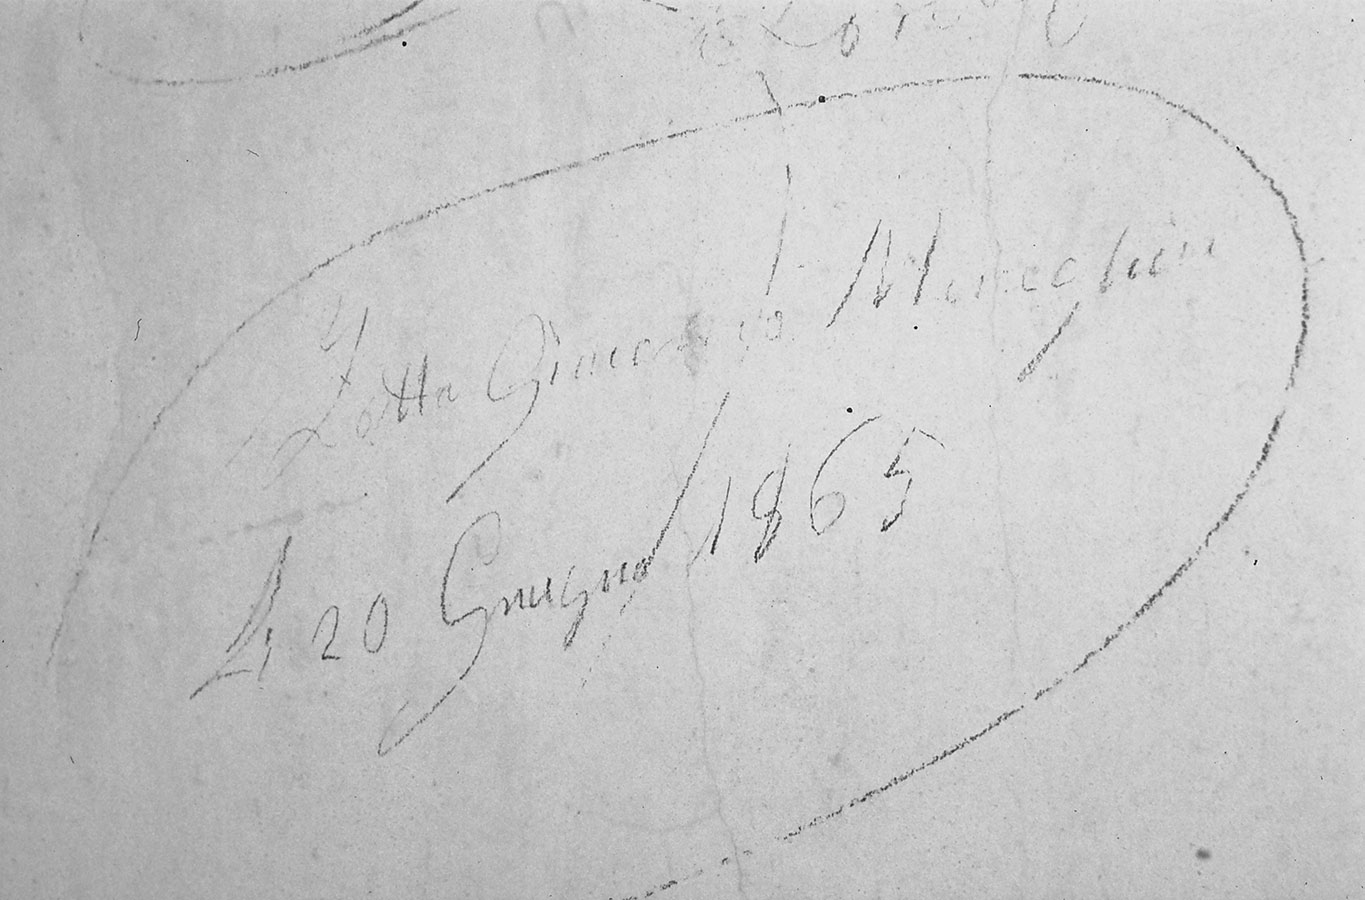 Zotta Giacomo Meneghin
Li 20 Giugno 1865